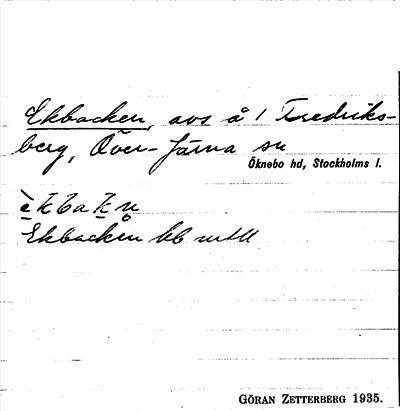 Ekbacken, avs å 1 Fredriks-
berg, Över-Järna sn
Öknebo hd, Stockholms l.
èkbakn̥
Ekbacken
GÖRAN ZETTERBERG 1935.